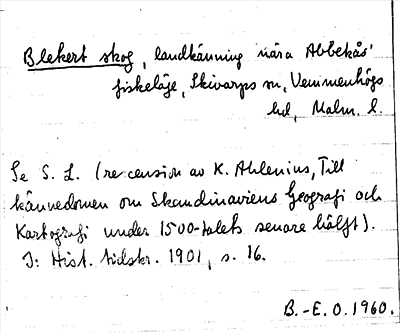 Blekert skog, landkänning nära Abbekås'
fiskeläge, Skivarps sn, Vemmenhögs
hd, Malm. l.
Se S. L. (recension av K. Ahlenius, Till
kännedomen om Skandinaviens Geografi och
Kartografi under 1500-talets senare hälft).
I: Hist. tidskr. 1901, s. 16.
B.-E. O. 1960.